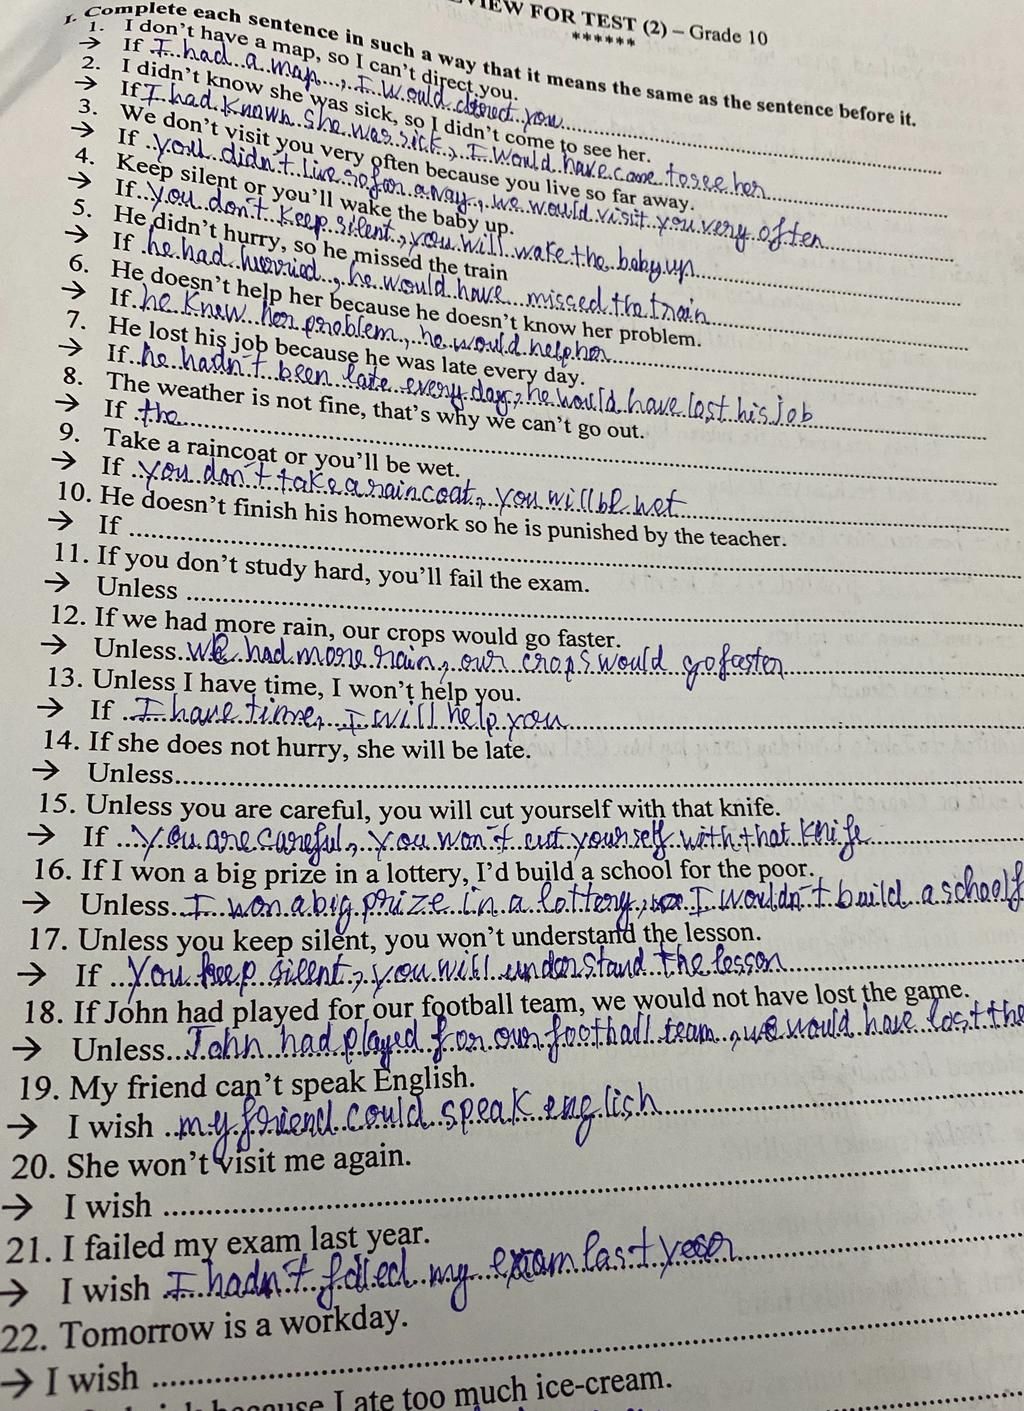 VIEW FOR TEST (2) – Grade 10
******
I. Complete each sentence in such a way that it means the same as the sentence before it.
1. I don't have a map, so I can't direct you.
→ If I had a map, I would direct you
2. I didn't know she was sick, so I didn't come to see her.
→ If I had known she was sick, I would have come to see her
3. We don't visit you very often because you live so far away.
→ If you didn't live so far away, we would visit you very often
4. Keep silent or you'll wake the baby up.
→ If you don't keep silent, you will wake the baby up
5. He didn't hurry, so he missed the train
→ If he had hurried, he would have missed the train
6. He doesn't help her because he doesn't know her problem.
→ If he knew her problem, he would help her
7. He lost his job because he was late every day.
→ If he hadn't been late every day, he would have lost his job
8. The weather is not fine, that's why we can't go out.
→ If the
9. Take a raincoat or you'll be wet.
→ If you don't take a raincoat, you will be wet
10. He doesn't finish his homework so he is punished by the teacher.
→ If
11. If you don't study hard, you'll fail the exam.
→ Unless
12. If we had more rain, our crops would go faster.
→ Unless we had more rain, our crops would go faster
13. Unless I have time, I won't help you.
→ If I have time, I will help you
14. If she does not hurry, she will be late.
→ Unless
15. Unless you are careful, you will cut yourself with that knife.
→ If you are careful, you won't cut yourself with that knife
16. If I won a big prize in a lottery, I'd build a school for the poor.
→ Unless I won a big prize in a lottery, I wouldn't build a school f
17. Unless you keep silent, you won't understand the lesson.
→ If you keep silent, you will understand the lesson
18. If John had played for our football team, we would not have lost the game.
→ Unless John had played for our football team, we would have lost the
19. My friend can't speak English.
→ I wish my friend could speak english
20. She won't visit me again.
→ I wish
21. I failed my exam last year.
→ I wish I hadn't failed my exam last year
22. Tomorrow is a workday.
→ I wish
because I ate too much ice-cream.